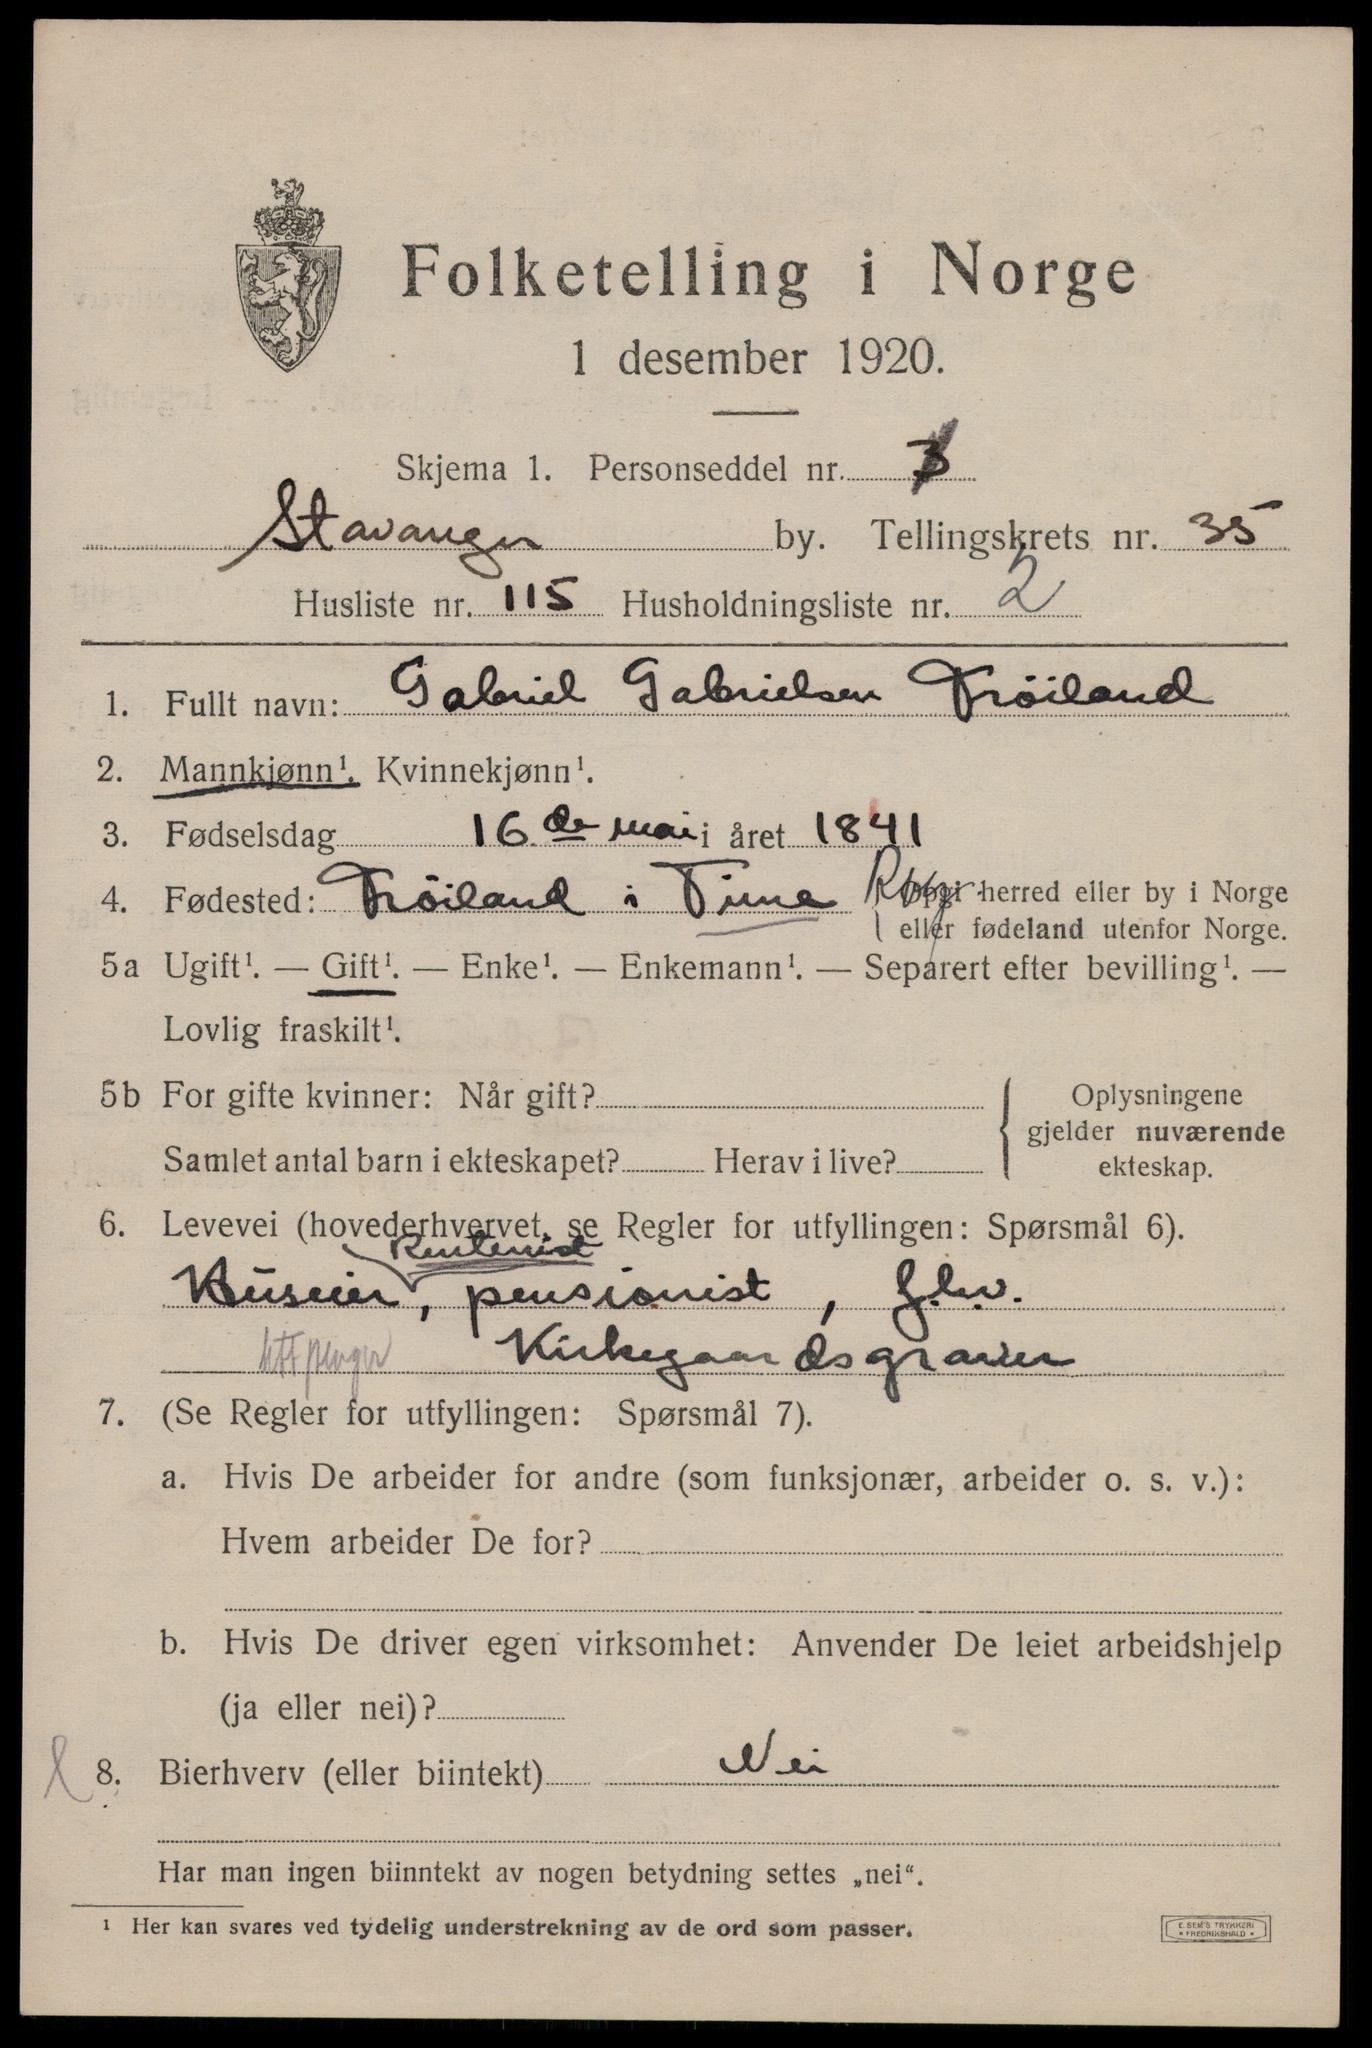 Folketelling i Norge
1 desember 1920.
Skjema 1. Personseddel nr.
Stavanger by. Tellingskrets nr. 35
Husliste nr. 115 Husholdningsliste nr. 2
1. Fullt navn: Gabriel Gabrielsen Tröiland
2. Mannkjønn¹. Kvinnekjønn¹.
3. Fødselsdag 16de mai i året 1841
4. Fødested: Tröiland i Time Rog. { Opgi herred eller by i Norge
eller fødeland utenfor Norge.
5a Ugift¹. — Gift¹. — Enke¹. — Enkemann¹. — Separert efter bevilling¹. —
Lovlig fraskilt¹.
5b For gifte kvinner: Når gift?
Samlet antal barn i ekteskapet? Herav i live?
{ Oplysningene
gjelder nuværende
ekteskap.
6. Levevei (hovederhvervet, se Regler for utfyllingen: Spørsmål 6).
Rentenist
Huseier, pensionist, f.h.v.
Kirkegaardsgraver
7. (Se Regler for utfyllingen: Spørsmål 7).
a. Hvis De arbeider for andre (som funksjonær, arbeider o. s. v.):
Hvem arbeider De for?
b. Hvis De driver egen virksomhet: Anvender De leiet arbeidshjelp
(ja eller nei)?
8. Bierhverv (eller biintekt) Nei
Har man ingen biinntekt av nogen betydning settes „nei“.
¹ Her kan svares ved tydelig understrekning av de ord som passer.
E. SEM'S TRYKKERI
* FREDRIKSHALD *